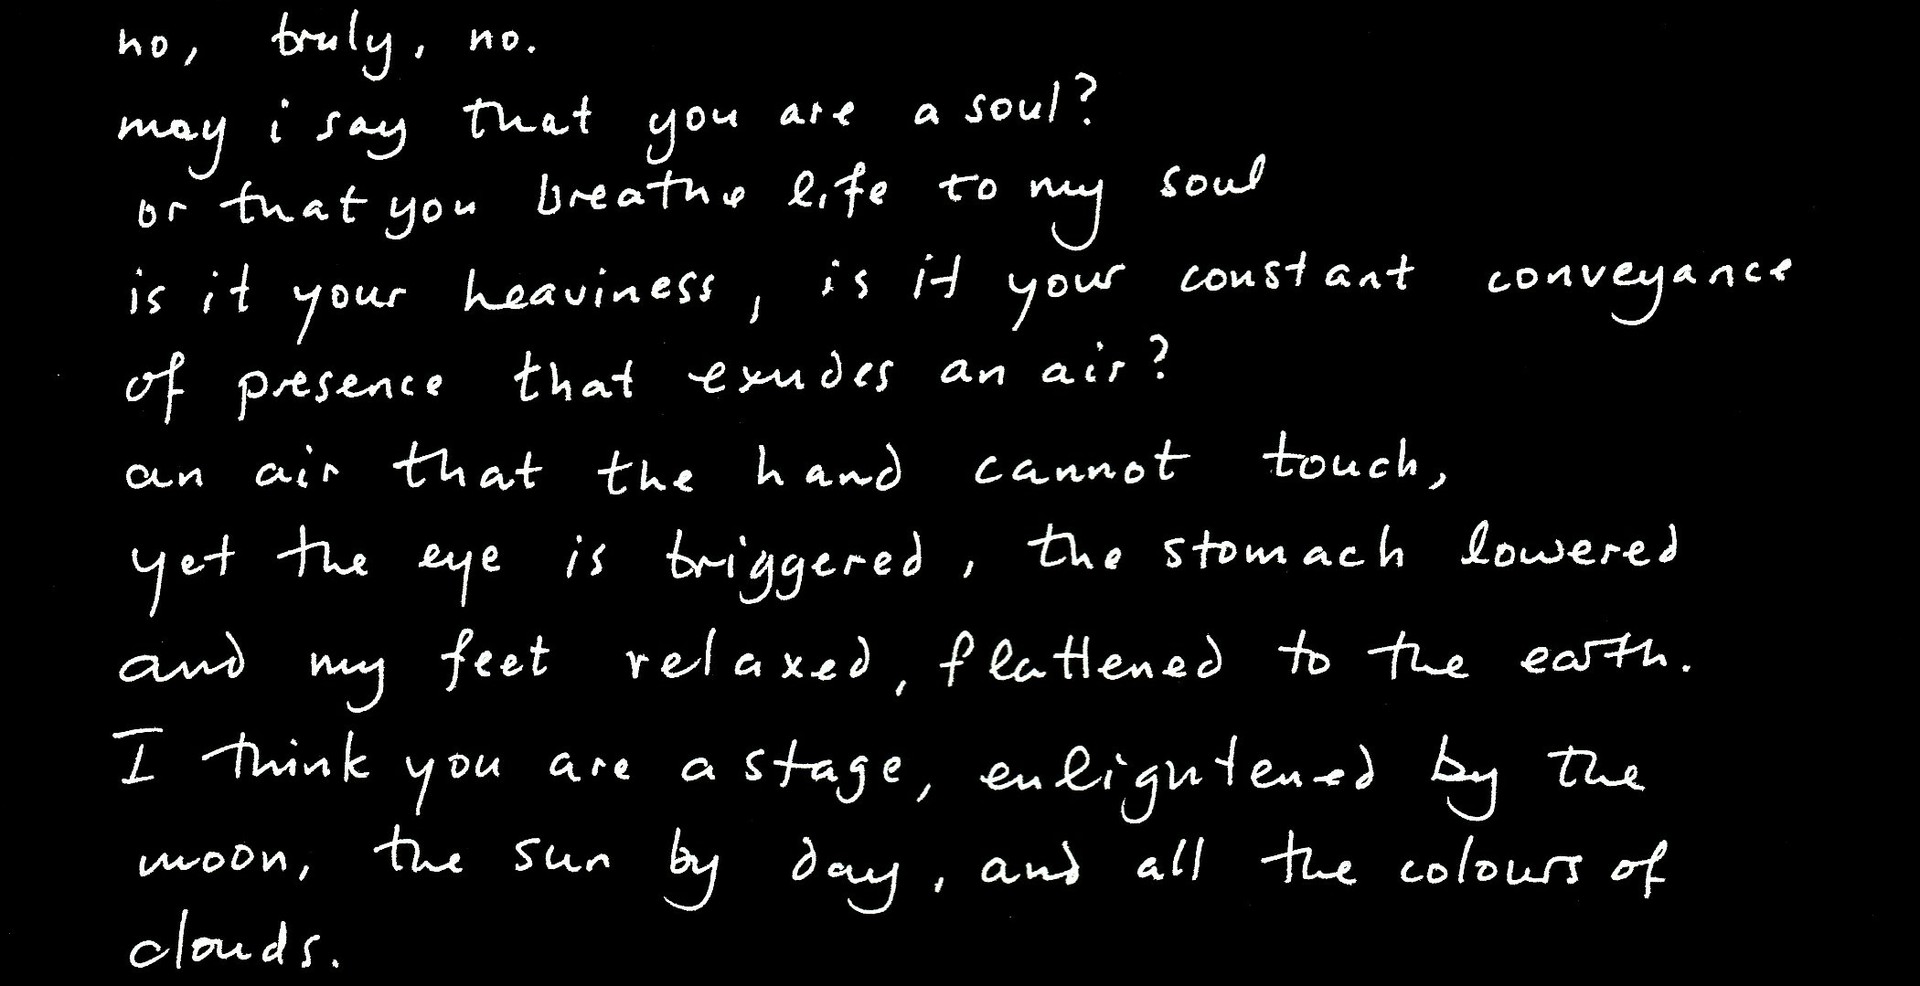 no, truly, no.
may i say that you are a soul?
or that you breathe life to my soul
is it your heaviness, is it your constant conveyance
of presence that exudes an air?
an air that the hand cannot touch,
yet the eye is triggered, the stomach lowered
and my feet relaxed, flattened to the earth.
I think you are a stage, enlightened by the
moon, the sun by day, and all the colours of
clouds.